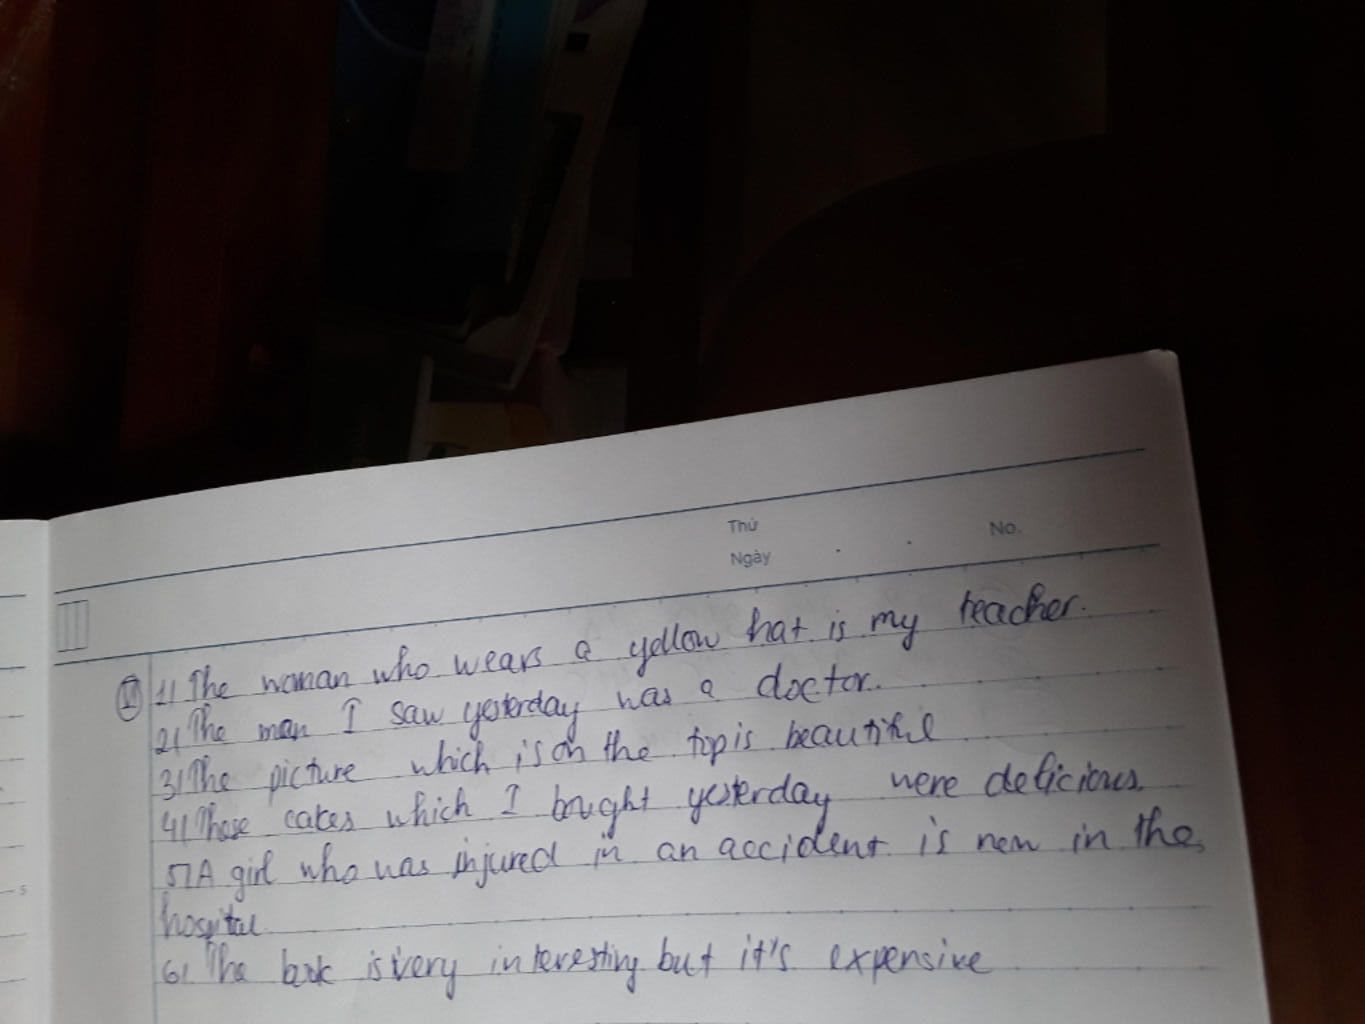 Thứ
No.
Ngày
1) The woman who wears a yellow hat is my teacher.
2) The man I saw yesterday was a doctor.
3) The picture which is on the top is beautiful
4) Those cakes which I bought yesterday were delicious.
5) A girl who was injured in an accident is now in the
hospital
6) The book is very interesting but it's expensive